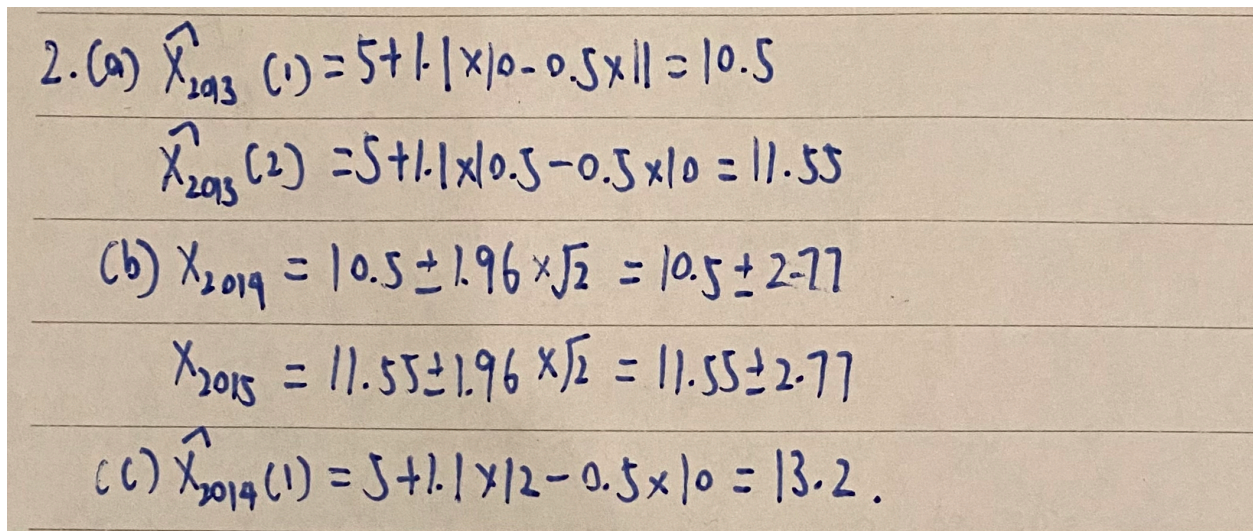 2. (a) X̂₂₀₁₃ (1) = 5+1.1×10-0.5×11 = 10.5
X̂₂₀₁₃ (2) = 5+1.1×10.5-0.5×10 = 11.55
(b) X₂₀₁₄ = 10.5±1.96×√2 = 10.5±2.77
X₂₀₁₅ = 11.55±1.96×√2 = 11.55±2.77
(c) X̂₂₀₁₄ (1) = 5+1.1×12-0.5×10 = 13.2.